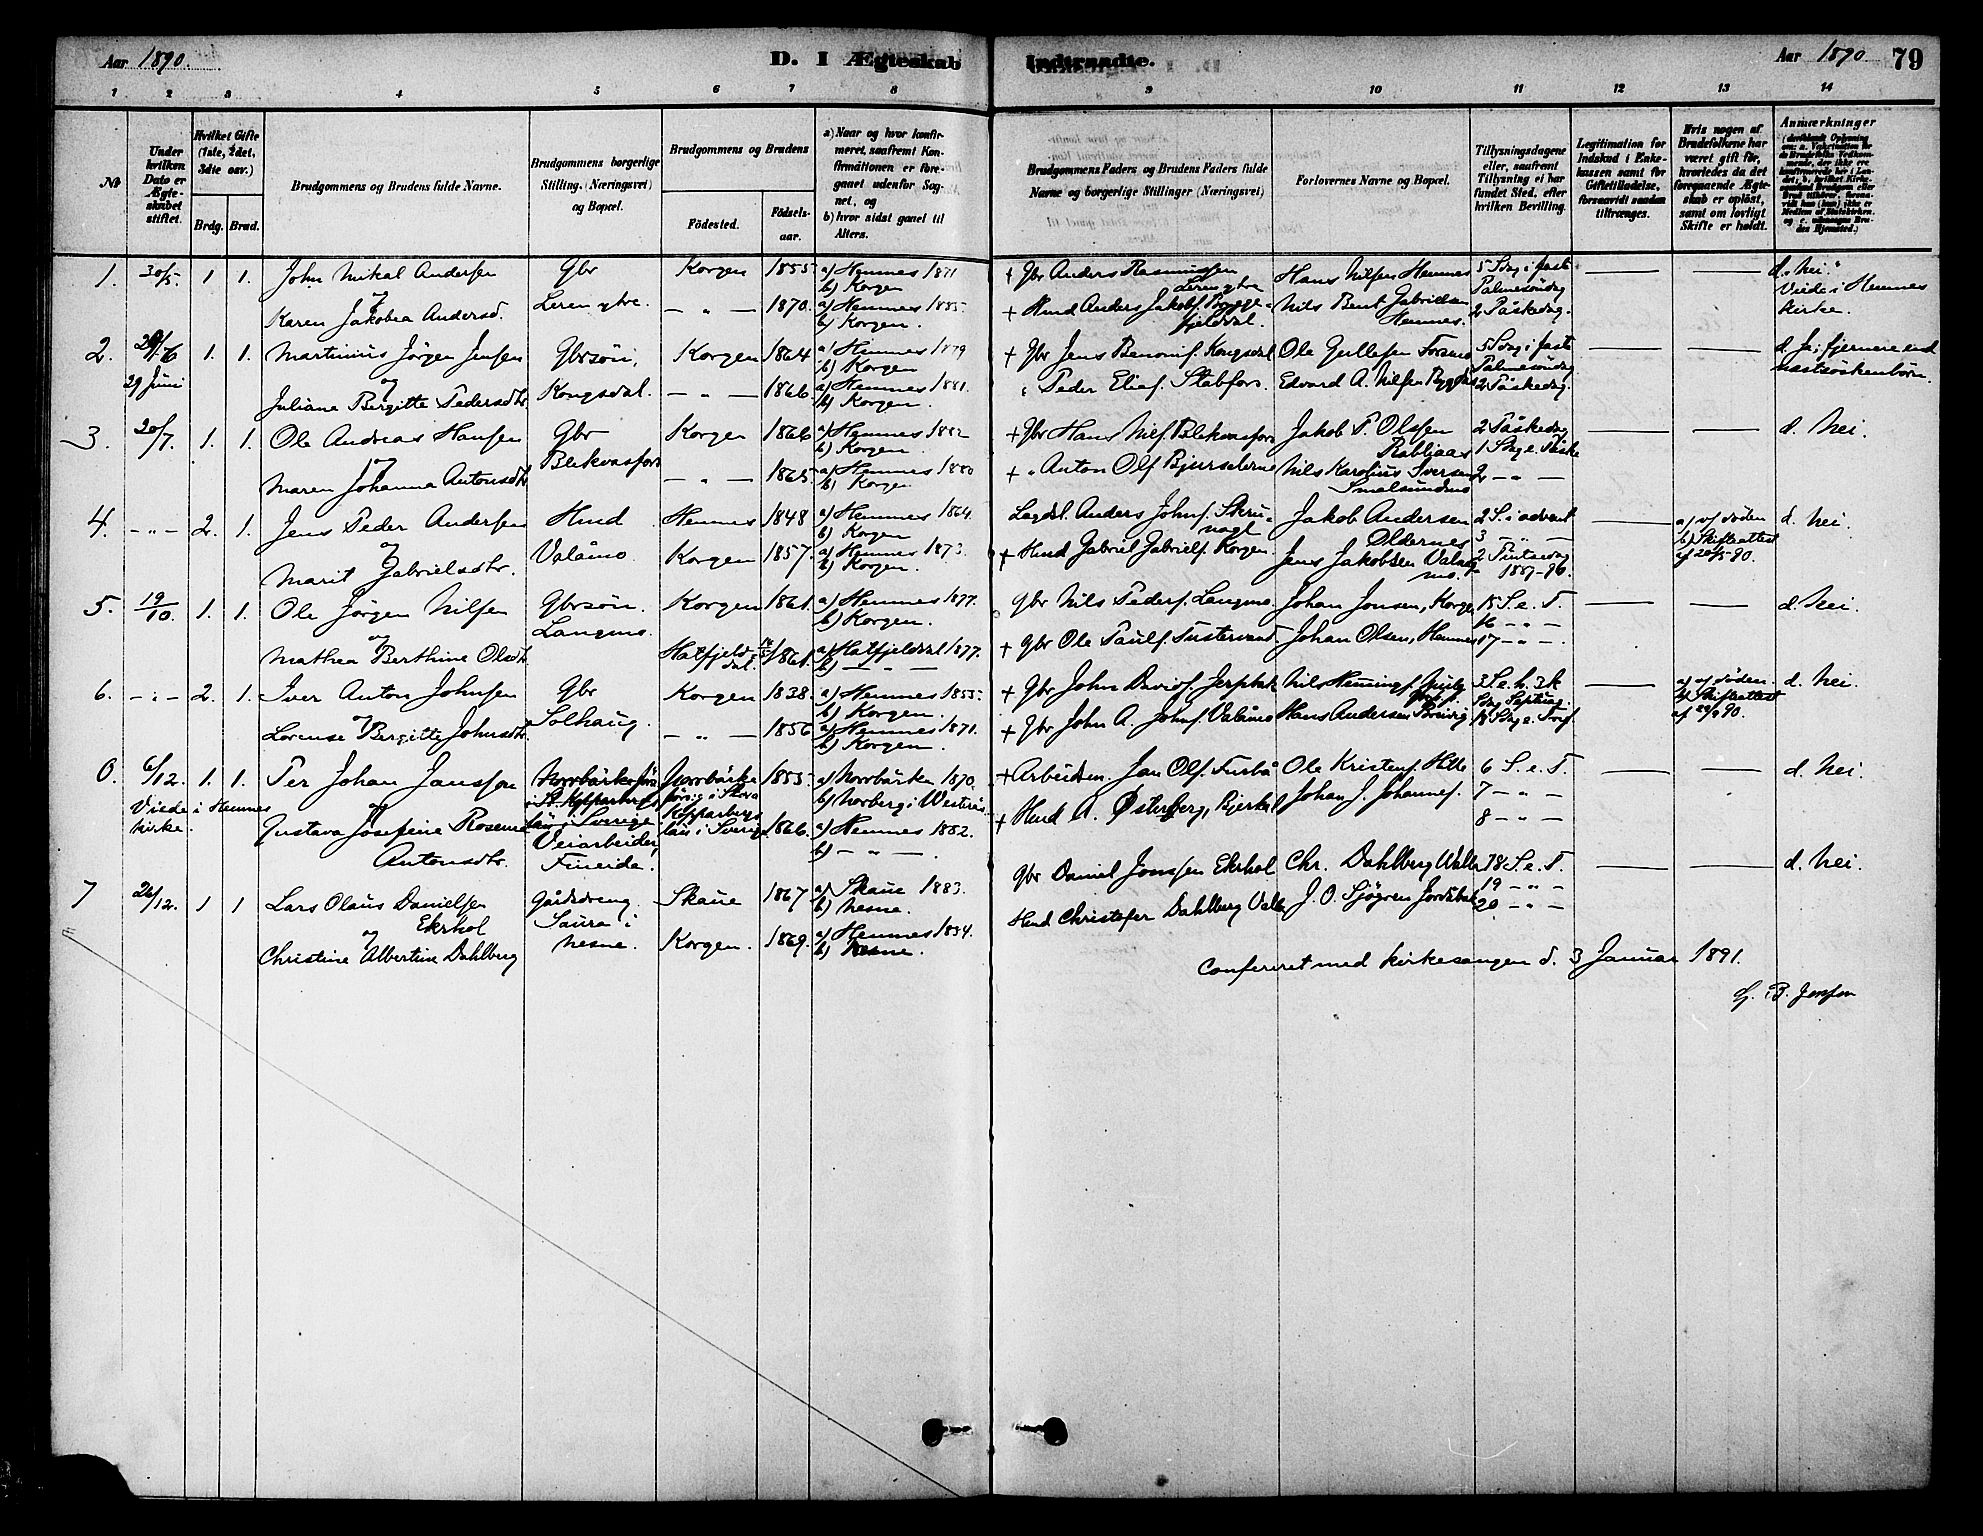 Aar 1890.
D. I Ægteskab
Indtraadte.
Aar 1890
79
1 2 3 4 5 6 7 8 9 10 11 12 13 14
№
Under hvilken Dato er Ægteskabet stiftet.
Hvilket Gifte (1ste, 2det, 3die osv.)
Brdg. Brud.
Brudgommens og Brudens fulde Navne.
Brudgommens borgerlige Stilling. (Næringsvei) og Bopæl.
Brudgommens og Brudens
Födested. Födselsaar.
a) Naar og hvor konfirmeret, saafremt Konfirmationen er foregaaet udenfor Sognet, og
b) hvor sidst gaaet til Alters.
Brudgommens Faders og Brudens Faders fulde Navne og borgerlige Stillinger (Næringsvei)
Forlovernes Navne og Bopæl.
Tillysningsdagene eller, saafremt Tillysning ei har fundet Sted, efter hvilken Bevilling.
Legitimation for Indskud i Enkekassen samt for Giftetilladelse, forsaavidt saadan tiltrænges.
Hvis nogen af Brudefolkene har været gift før, hvorledes da det foregaaende Ægteskab er oplöst, samt om lovligt Skifte er holdt.
Anmærkninger
1. 30/5 1 1. John Mikal Andersen Gbr Korgen 1855 a) Hemnes 1871 + Gbr Anders Rasmussen Hans Nilsen Hemnes 5 Søg i faste — — d. Nei.
og Lerengtre. b) Korgen Lerengtre Palmesöndag Viede i Hemnes
Karen Jakobea Andersd. — „ — 1870. a) Hemnes 1885. + Hmd Anders Jakobs. Brygge- Nils Bent Gabrielsen 2 Påskedag. Kirke.
b) Korgen. fjelddal. Hemnes.
2. 29/6 1. 1. Martinius Jörgen Jensen Gbrsön, Korgen 1864 a) Hemnes 1879 + Gbr Jens Benonis. Kongsdal Ole Gullesen Forsmo 5 Søg i faste — — d. Ja; fjernere end
29 Juni og b) Korgen Palmesöndag næstsöskenbörn.
Juliane Bergitte Pedersdtr. Kongsdal. — „ — 1866. a) Hemnes 1881. „ Peder Elias. Stabfors. Edvard A. Nilsen 2 Påskedag.
b) Korgen.
3. 20/7. 1. 1. Ole Andreas Hansen Gbr Korgen 1866 a) Hemnes 1882 + Gbr Hans Nils. Blekvasfors Jakob P. Olssen 2 Påskedag — — d. Nei.
og Blekvasfors b) Korgen. 1 Søg e. Påske
Maren Johanna Antonsdtr — „ — 1865. a) Hemnes 1880 + „ Anton Ols. Bjurselerne Nils Karolius Iversen 2 — „ —
b) Korgen Smalsundmo
4. — „ — 2. 1. Jens Peder Andersen Hmd Hemnes 1848 a) Hemnes 1864. Lagdsl. Anders Johns. Skru- Jakob Andersen 2 S. i advent — a) v/ döden d. Nei.
og Valåmo b) Korgen nagl Oldernes 3 — „ — b) Skifteattest
Marit Gabrielsdtr. Korgen 1857. a) Hemnes 1873. + Hmd Gabriel Gabriels. Korgen. Jens Jakobsen Valaa- 2 Pintsedag af 20/5 90.
b) Korgen. mo. 1887–90.
5. 19/10. 1. 1. Ole Jörgen Nilsen Gbrsön. Korgen 1861. a) Hemnes 1877. Gbr Nils Peders. Langmo. Johan Jonsen, Korge 15 S. e. T. — — d. Nei.
og Langmo. b) Korgen. 16 — „ —
Mathea Berthine Olsdtr Hatfjelddal. 1861. a) Hatfjeldal 1877. + Gbr Ole Pauls. Tustervand. Johan Olsen, Hemnes 17 — „ —.
b) — „ —
6. — „ — 2. 1. Iver Anton Johnsen Gbr Korgen 1838. a) Hemnes 1855. + Gbr John Davids. Jerpbak Nils Hemmings. 3 S. e. h. 3 k — a) v/ döden d. Nei.
og Solhaug. b) Korgen. Søg Septuag. b) Skifteattest
Lorense Bergitte Johnsdtr. — „ — 1856 a) Hemnes 1871. + Gbr John A. Johns. Valåmo Hans Andersen Breivig af 29/9 90.
b) Korgen.
6. 6/12. 1. 1. Per Johan Jansson Norrbärke 1855. a) Norrbärke 1870. + Arbeidsm. Jan Ols. Furbå Ole Kristens. 6 S. e. T. — — d. Nei.
Viede i Hemnes og i St. Kopparbergs i Stora b) Norberg i Westerås. 7 — „ —
Kirke. Gustava Josefine Rosene län i Sverige. Kopparbergs län i Sverige 1866. a) Hemnes 1882. + Hmd A. Österberg, Bjerkal Johan J. Johannes. 8 — „ —
Antonsdtr. Veiarbeider, Fineide. b) — „ —.
7 26/12. 1 1 Lars Olaus Danielsen Gårdsdreng. Skaue 1867 a) Skaue 1883. Gbr Daniel Jonssen Ekrhol Chr. Dahlberg Valla 18 S. e. T. — — d. Nei.
Ekrhol Saura i b) Nesne. 19 — „ —
og Nesne. Korgen. 1869. a) Hemnes 1834. Hmd Christofer Dahlberg Valla J. O. Sjögren Jordbak 20 — „ —
Christine Albertine Dahlberg b) Nesne.
Confereret med kirkesangen d. 3 Januar 1891.
G. B. Jenssen